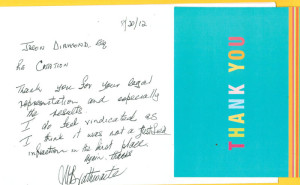 11/20/12
Jason Diamond, Esq
Re Citation
Thank you for your legal
representation and especially
the results.
I do feel vindicated as
I think it was not a justified
infraction in the first place
again. thanks
THANK YOU